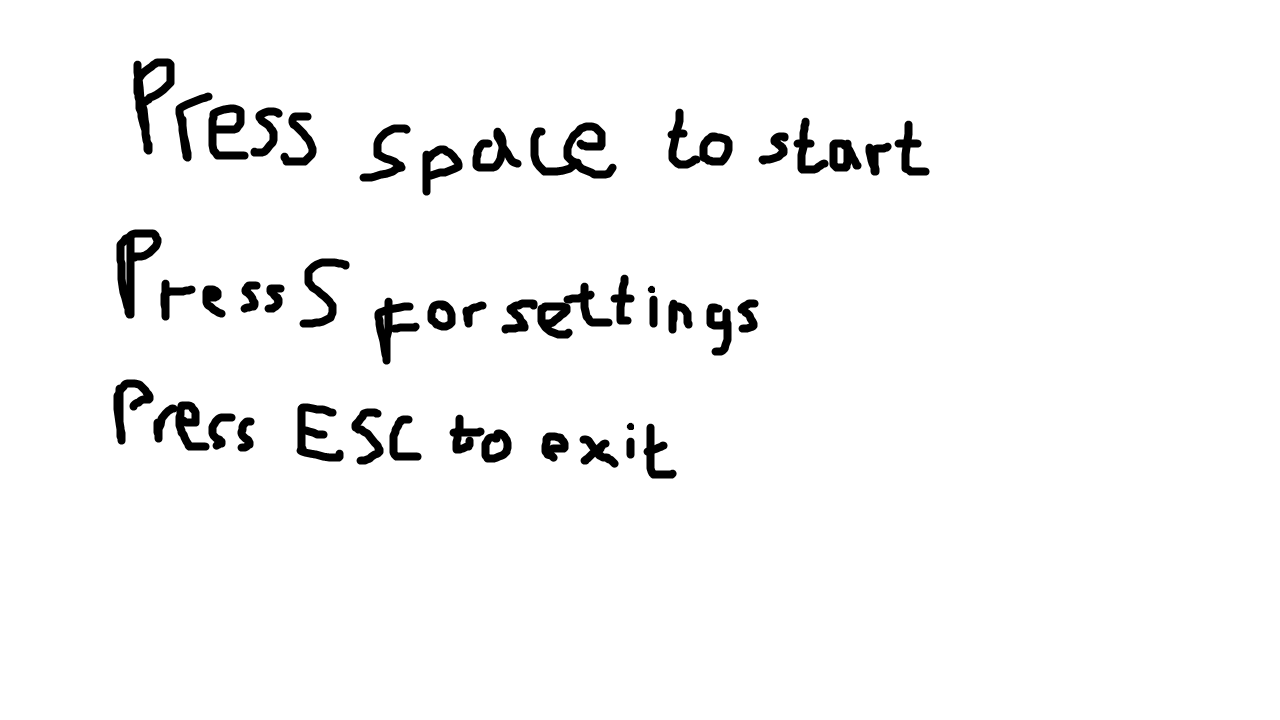 Press space to start
Press S for settings
Press ESC to exit